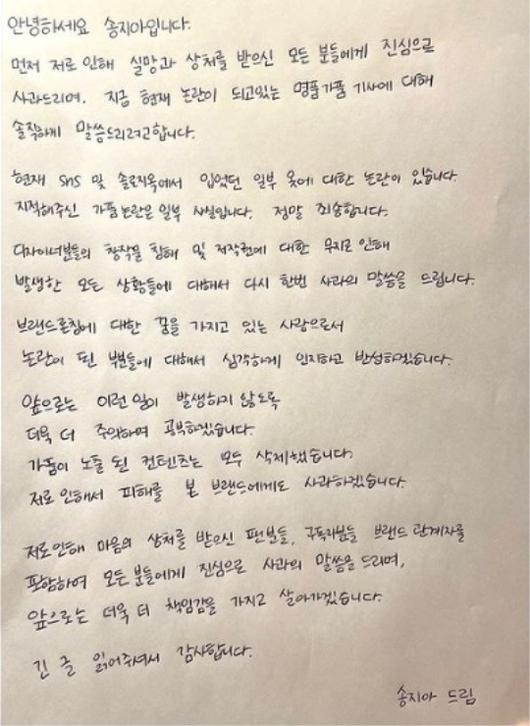 안녕하세요 송지아입니다.
먼저 저로 인해 실망과 상처를 받으신 모든 분들에게 진심으로
사과드리며, 지금 현재 논란이 되고있는 명품가품 기사에 대해
솔직하게 말씀드리려고합니다.
현재 sns 및 솔로지옥에서 입었던 일부 옷에 대한 논란이 있습니다.
지적해주신 가품논란은 일부 사실입니다. 정말 죄송합니다.
디자이너분들의 창작물 침해 및 저작권에 대한 무지로 인해
발생한 모든 상황들에 대해서 다시 한번 사과의 말씀을 드립니다.
브랜드론칭에 대한 꿈을 가지고 있는 사람으로서
논란이 된 부분들에 대해서 심각하게 인지하고 반성하겠습니다.
앞으로는 이런 일이 발생하지 않도록
더욱 더 주의하며 공부하겠습니다.
가품이 노출 된 컨텐츠는 모두 삭제했습니다.
저로인해서 피해를 본 브랜드에게도 사과하겠습니다.
저로인해 마음의 상처를 받으신 팬분들, 구독자분들 브랜드 관계자를
포함하여 모든분들에게 진심으로 사과의 말씀을 드리며,
앞으로는 더욱 더 책임감을 가지고 살아가겠습니다.
긴 글 읽어주셔서 감사합니다.
송지아 드림